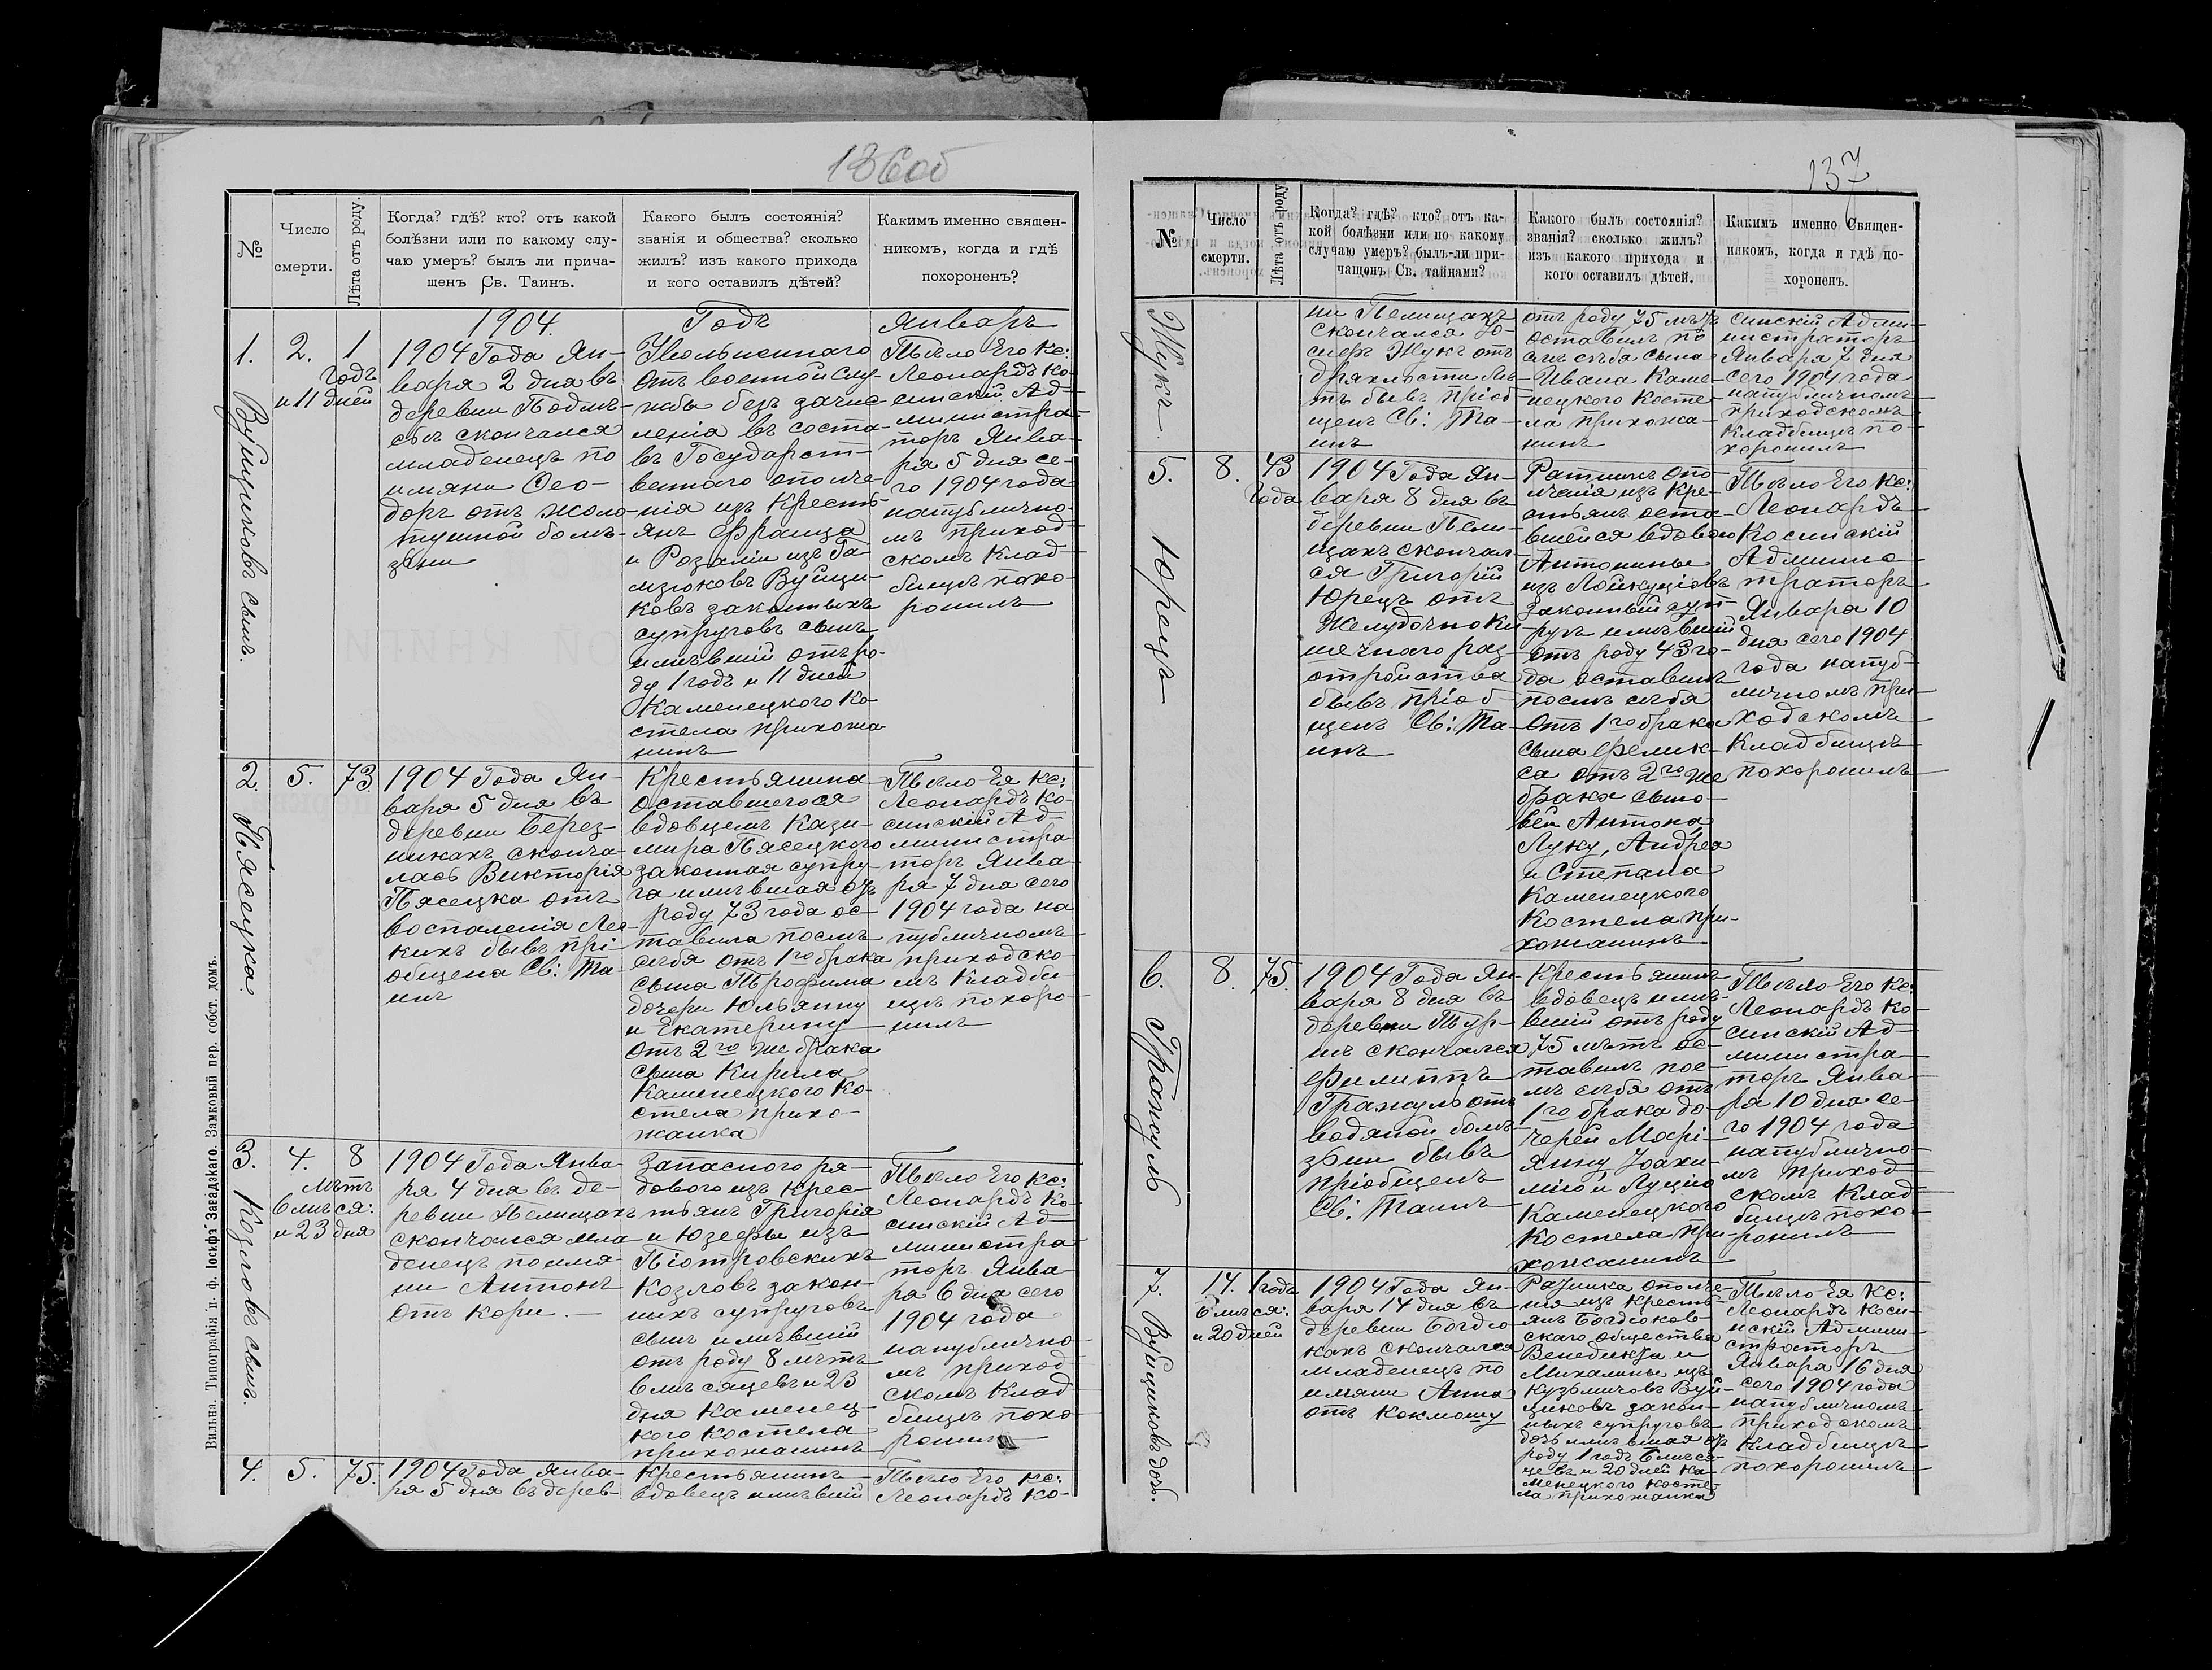 136об
№
Число
смерти.
Лѣта отъ роду.
Когда? гдѣ? кто? отъ какой
болѣзни или по какому слу-
чаю умеръ? былъ ли прича-
щенъ Св. Таинъ.
Какого былъ состоянія?
званія и общества? сколько
жилъ? изъ какого прихода
и кого оставилъ дѣтей?
Какимъ именно священ-
никомъ, когда и гдѣ
похороненъ?
1904. Годъ Январь
1.
Вуйциковъ сынъ.
2.
1
годъ
и 11 дней
1904 Года Ян-
варя 2 дня въ
деревни Подлѣ-
сьѣ скончался
младенецъ по
имяни Ѳео-
доръ отъ жоло-
тушной болѣ-
зни
Увольненнаго
отъ военной слу-
жбы безъ зачис-
ленія въ соста-
въ Государст-
веннаго ополче-
нія изъ Кресть-
янъ Франца
и Розаліи изъ Га-
лузюковъ Вуйци-
ковъ законныхъ
супруговъ сынъ
имѣвшій отъ ро-
ду 1 годъ и 11 дней
Каменецкого Ко-
стела прихожа
нинъ
Тѣло Его Кс:
Леонардъ Ко-
синскій Ад-
министра-
торъ Янва-
ря 5 дня се-
го 1904 года
напублично-
мъ приход-
скомъ Клад-
бищѣ похо-
ронилъ
2.
Пясецка.
5.
73
1904 Года Ян-
варя 5 дня въ
деревни Берез-
никахъ сконча-
лась Викторія
Пясецка отъ
воспаленія Лег-
кихъ бывъ прі-
общена Св: Та-
инъ
Крестьянина
оставшегося
вдовцемъ Кази-
мира Пясецкого
законная супру-
га имѣвшая отъ
роду 73 года ос-
тавила послѣ
себя отъ 1го брака
сына Трофима
дочери Юльянну
и Екатерину
отъ 2го же брака
сына Кирила
Каменецкого Ко-
стела прихо-
жанка
Тѣло Ея Кс:
Леонардъ Ко-
синскій Ад-
министра-
торъ Янва-
ря 7 дня сего
1904 года на
публичномъ
приходско-
мъ Кладби-
щѣ похоро-
нилъ
3.
Козловъ сынъ.
4.
8
лѣтъ
6 мѣся:
и 23 дня
1904 Года Янва-
ря 4 дня въ де-
ревни Пелищахъ
скончался мла-
денецъ по имя-
ни Антонъ
отъ кори.
Запасного ря-
дового изъ крес-
тьянъ Григорія
и Юзефы изъ
Піотровскихъ
Козловъ закон-
ныхъ супруговъ
сынъ имѣвшій
отъ роду 8 лѣтъ
6 мѣсяцевъ и 23
дня Каменец-
кого Костела
прихожанинъ
Тѣло Его Кс:
Леонардъ Ко-
синскій Ад-
министра-
торъ Янва-
ря 6 дня сего
1904 года
напублично-
мъ приход-
скомъ Клад-
бищѣ похо-
ронилъ
4.
5.
75.
1904 Года Янва-
ря 5 дня въ дерев-
Крестьянинъ
вдовецъ имѣвшій
Тѣло Его Кс:
Леонардъ Ко-
Вильна. Типографія п. ф. Іосифъ Завадзкаго. Замковый пер. собст. домъ.
137
№
Число
смерти.
Лѣта отъ роду
Когда? гдѣ? кто? отъ ка-
кой болѣзни или по какому
случаю умеръ? былъ-ли при-
чащенъ Св. тайнами?
Какого былъ состоянія?
званія? сколько жилъ?
изъ какого прихода и
кого оставилъ дѣтей.
Какимъ именно Священ-
никомъ, когда и гдѣ по-
хороненъ.
Жукъ.
ни Пелищахъ
скончался Іо-
сифъ Жукъ отъ
дряхлости лѣ-
тъ бывъ пріоб-
щенъ Св: Та-
инъ
отъ роду 75 лѣтъ
оставилъ по
слѣ себя сына
Ивана Каме-
нецкого Косте-
ла прихожа-
нинъ
синскій Адми-
нистраторъ
Января 7 дня
сего 1904 года
напубличномъ
приходскомъ
Кладбищѣ по-
хоронилъ
5.
Юрецъ
8.
43
года
1904 Года Ян-
варя 8 дня въ
деревни Пели-
щахъ скончал-
ся Григорій
Юрецъ отъ
Желудочноки-
шечнаго раз-
стройства
бывъ пріоб-
щенъ Св: Та-
инъ
Ратникъ опо-
лченія изъ Кре-
стьянъ оста-
вшейся вдовою
Антонины
изъ Лойкуціовъ
законный суп-
ругъ имѣвшій
отъ роду 43 го-
да оставилъ
послѣ себя
отъ 1го брака
сына Феликс-
са отъ 2го же
брака сыно-
вей Антона,
Луку, Андрея
и Степана
Каменецкого
Костела при-
хожанинъ
Тѣло Его Кс:
Леонардъ
Косинскій
Админис-
траторъ
Января 10
дня сего 1904
года напуб-
личномъ при-
ходскомъ
Кладбищѣ
похоронилъ
6.
Гражуль
8.
75.
1904 Года Ян-
варя 8 дня въ
деревни Тур-
нѣ скончался
Филиппъ
Гражуль отъ
водяной болѣ-
зни бывъ
пріобщенъ
Св: Таинъ
Крестьянинъ
вдовецъ имѣ-
вшій отъ роду
75 лѣтъ ос-
тавилъ пос-
лѣ себя отъ
1го брака до-
черей Марі-
янну Іоахи-
мію и Луцію
Каменецкого
Костела при-
хожанинъ
Тѣло Его Кс:
Леонардъ Ко-
синскій Ад-
министра-
торъ Янва-
ря 10 дня се-
го 1904 года
напублично-
мъ приход-
скомъ Клад-
бищѣ похо-
ронилъ
7.
Вуйциковъ дочь.
14.
1 годъ
6 мѣся:
и 20 дней
1904 Года Ян-
варя 14 дня въ
деревни Богдю-
кахъ скончался
младенецъ по
имяни Анна
отъ Коклюшу
Ратника ополче-
нія изъ Кресть-
янъ Богдюков-
скаго общества
Венедикта и
Михалины изъ
Кузьмичовъ Вуй-
циковъ закон-
ныхъ супруговъ
дочь имѣвшая отъ
роду 1 годъ 6 мѣся-
цевъ и 20 дней Ка-
менецкого Косте-
ла прихожанка
Тѣло Ея Кс:
Леонардъ Коси-
нскій Админи-
страторъ
Января 16 дня
сего 1904 года
напубличномъ
приходскомъ
Кладбищѣ
похоронилъ